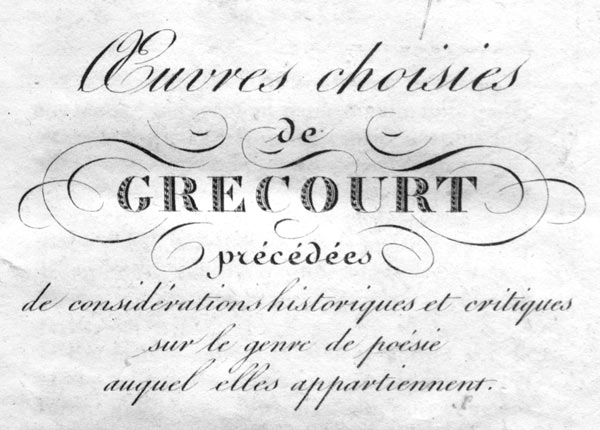 Œuvres choisies
de
GRECOURT
précédées
de considérations historiques et critiques
sur le genre de poésie
auquel elles appartiennent.